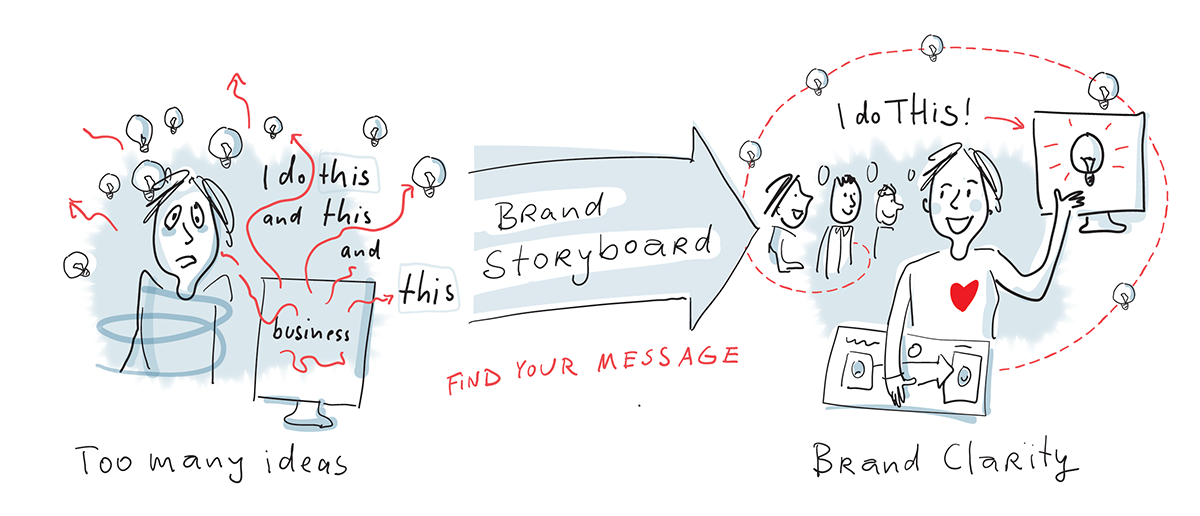 I do this
and this
and
this
business
Too many ideas
Brand
Storyboard
FIND YOUR MESSAGE
I do THIS!
Brand Clarity